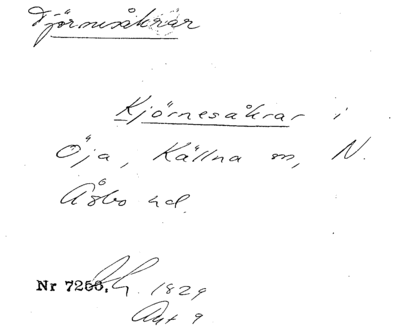 Tjörnesåkrar
Kjörnesåkrar i
Öja, Källna sn, N.
Åsbo hd.
Nr 7260. 1829
Akt 9